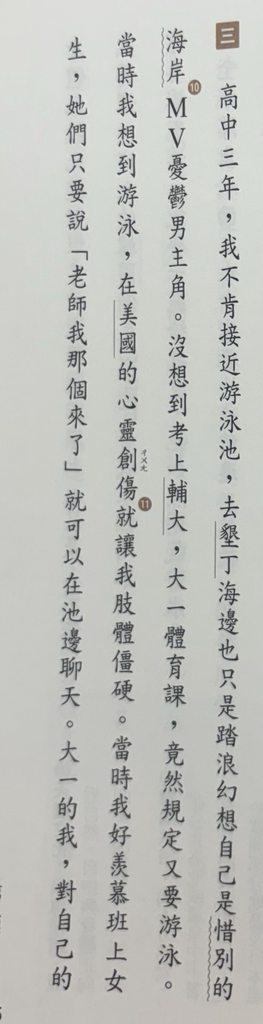 三
高中三年，我不肯接近游泳池，去墾丁海邊也只是踏浪幻想自己是惜別的
海岸⑩MV憂鬱男主角。沒想到考上輔大，大一體育課，竟然規定又要游泳。
當時我想到游泳，在美國的心靈創ㄔㄨㄤ傷⑪就讓我肢體僵硬。當時我好羨慕班上女
生，她們只要說「老師我那個來了」就可以在池邊聊天。大一的我，對自己的